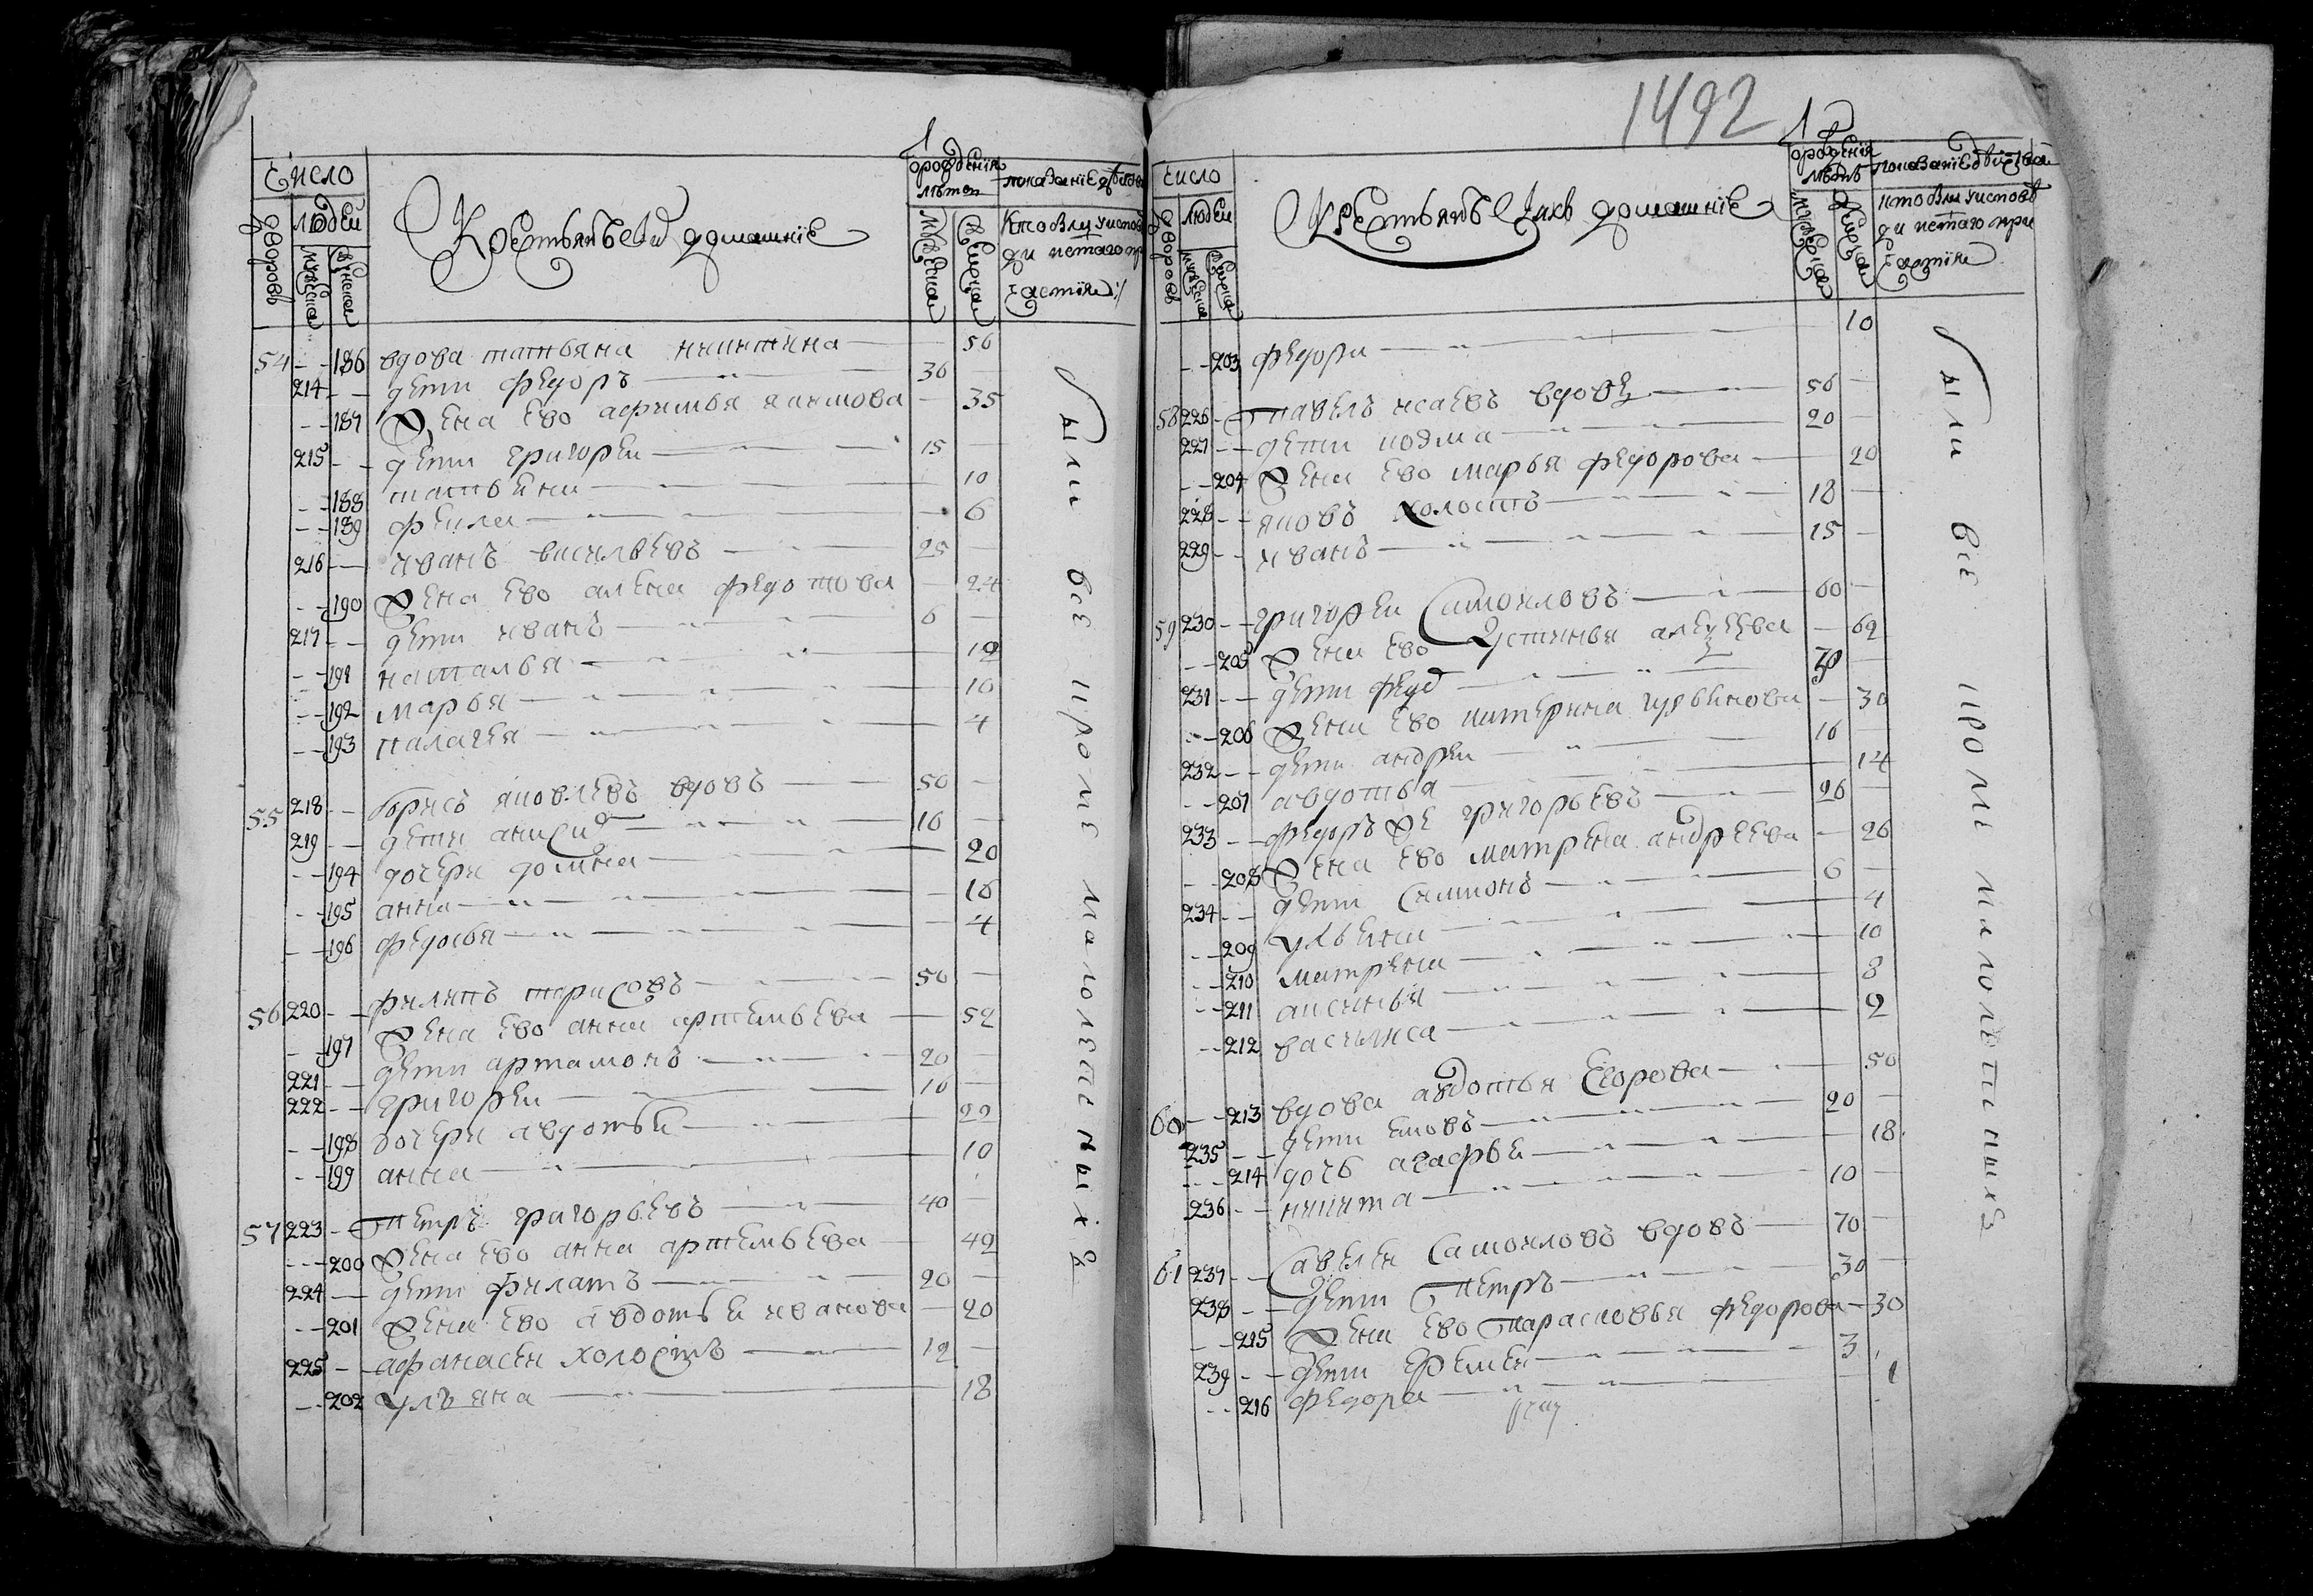 Число
Людей
дворовъ
мужеска
женска
Крестьяне и их домашние
От рождения
лѣта
мужеска
женска
показание действа
кто были у исповеди и святаго при
частия
54 186 вдова татьяна никитина 56
214 дети федоръ 36
187 жена ево афимья якимова 35
215 дети григореи 15
188 татьяна 10
189 фекла 6
216 иванъ васильевъ 25
190 жена ево алена федотова 24
217 дети иванъ 6
191 наталья 12
192 марья 10
193 палагея 4
55 218 борисъ яковлевъ вдовъ 50
219 дети анисим 16
194 дочери домна 20
195 анна 16
196 федосья 4
56 220 филипъ борисовъ 50
197 жена ево анна артемьева 52
221 дети артамонъ 20
222 григореи 16
198 дочери авдотья 22
199 анна 10
57 223 петръ григорьевъ 40
200 жена ево анна артемьева 42
224 дети филатъ 20
201 жена ево авдотья иванова 20
225 афанасеи холостъ 19
202 ульяна 18
были все кроме малолетныхъ
1492
Число
Людей
дворовъ
мужеска
женска
Крестьяне и ихъ домашние
От рождения
лѣтъ
мужеска
женска
показание действа
кто были у исповеди и святаго при
частия
203 федора 10
58 226 павелъ исаевъ вдовъ 56
227 дети козма 20
204 жена ево марья федорова 20
228 яковъ холостъ 18
229 иванъ 15
59 230 григореи самоиловъ 60
205 жена ево устинья алексеева 62
231 дети федор 30
206 жена ево катерина лукьянова 30
232 дети андреи 16
207 авдотья 14
233 федоръ же григорьевъ 26
208 жена ево матрена андреева 26
234 дети симионъ 6
209 ульяна 4
210 матрена 10
211 аксинья 8
212 василиса 2
60 213 вдова авдотья егорова 50
235 дети яковъ 20
214 дочь агафья 18
236 никита 10
61 237 савелеи самоиловъ вдовъ 70
238 дети петръ 30
215 жена ево парасковья федорова 30
239 дети еремеи 3
216 федора 1
были все кроме малолетныхъ